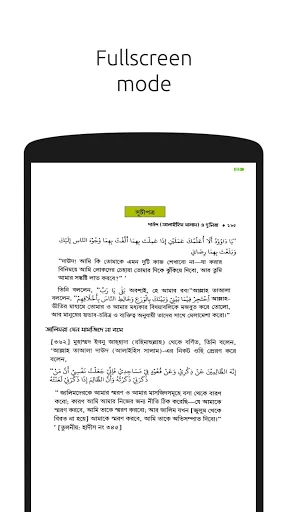 Fullscreen
mode
সূচীপত্র
দাউদ (আলাইহিস সালাম) ও দুনিয়া
"يَا دَاوُوْدُ أَلَا أُعَلِّمُكَ عَمَلَيْنِ إِذَا عَمِلْتَ بِهِمَا أَلَّفْتُ بِهِمَا وُجُوْهَ النَّاسِ إِلَيْكَ
وَبَلَغْتَ بِهِمَا رِضَايَ
"দাউদ! আমি কি তোমাকে এমন দুটি কাজ শেখাবো না—যা করার
বিনিময়ে আমি লোকদের চেহারা তোমার দিকে ঝুঁকিয়ে দিবো, আর তুমি
আমার সন্তুষ্টি লাভ করবে?"
তিনি বললেন, "بَلَى يَا رَبِّ অবশ্যই, হে আমার রব!" আল্লাহ তাআলা
বললেন,
আল্লাহ-
ভীতির মাধ্যমে তোমার ও আমার মধ্যকার বিষয়াবলিকে মজবুত করো,
আর মানুষের স্বভাব-চরিত্র ও ব্যক্তিত্ব অনুযায়ী তাদের সাথে মেলামেশা করো।"
জালিমরা যেন মাসজিদে না বসে
[৩৬২] মুহাম্মদ ইবনু জাহহাদা (রহিমাহুল্লাহ) থেকে বর্ণিত, তিনি বলেন,
'আল্লাহ তাআলা দাউদ (আলাইহিস সালাম)-এর নিকট ওহি প্রেরণ করে
বলেন,
"জালিমদেরকে আমার স্মরণ ও আমার মাসজিদসমূহে বসা থেকে বারণ
করো; কারণ আমি আমার নিজের জন্য নীতি ঠিক করেছি—যে আমাকে
স্মরণ করবে, আমি তাকে স্মরণ করবো; আর জালিম যখন [জুলুম থেকে
বিরত না হয়ে] আমাকে স্মরণ করে, আমি তাকে অভিসম্পাত দিবো।"
[তুলনীয়: হাদীস নং ৩৪০]